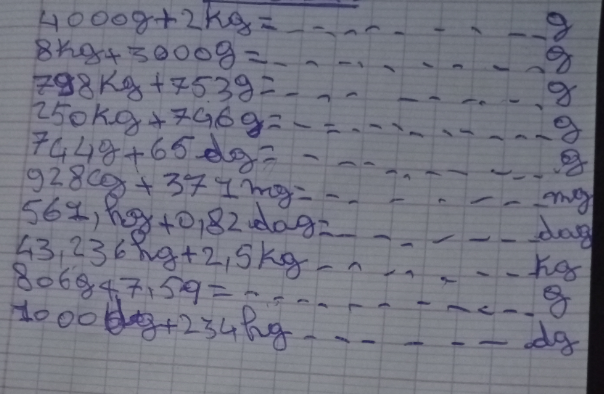 4000g+2kg=_ _ _ _ _ _ _ _ g
8kg+3000g=_ _ _ _ _ _ _ _ g
798kg+753g=_ _ _ _ _ _ _ g
250kg+746g=_ _ _ _ _ _ _ _ g
744g+65dg=_ _ _ _ _ _ _ _ g
928cg+371mg=_ _ _ _ _ _ _ mg
561,hg+0,82dag=_ _ _ _ _ _ dag
43,236hg+2,5kg_ _ _ _ _ _ _ kg
806g+7,5g=_ _ _ _ _ _ _ _ g
1000dg+234hg_ _ _ _ _ _ dg